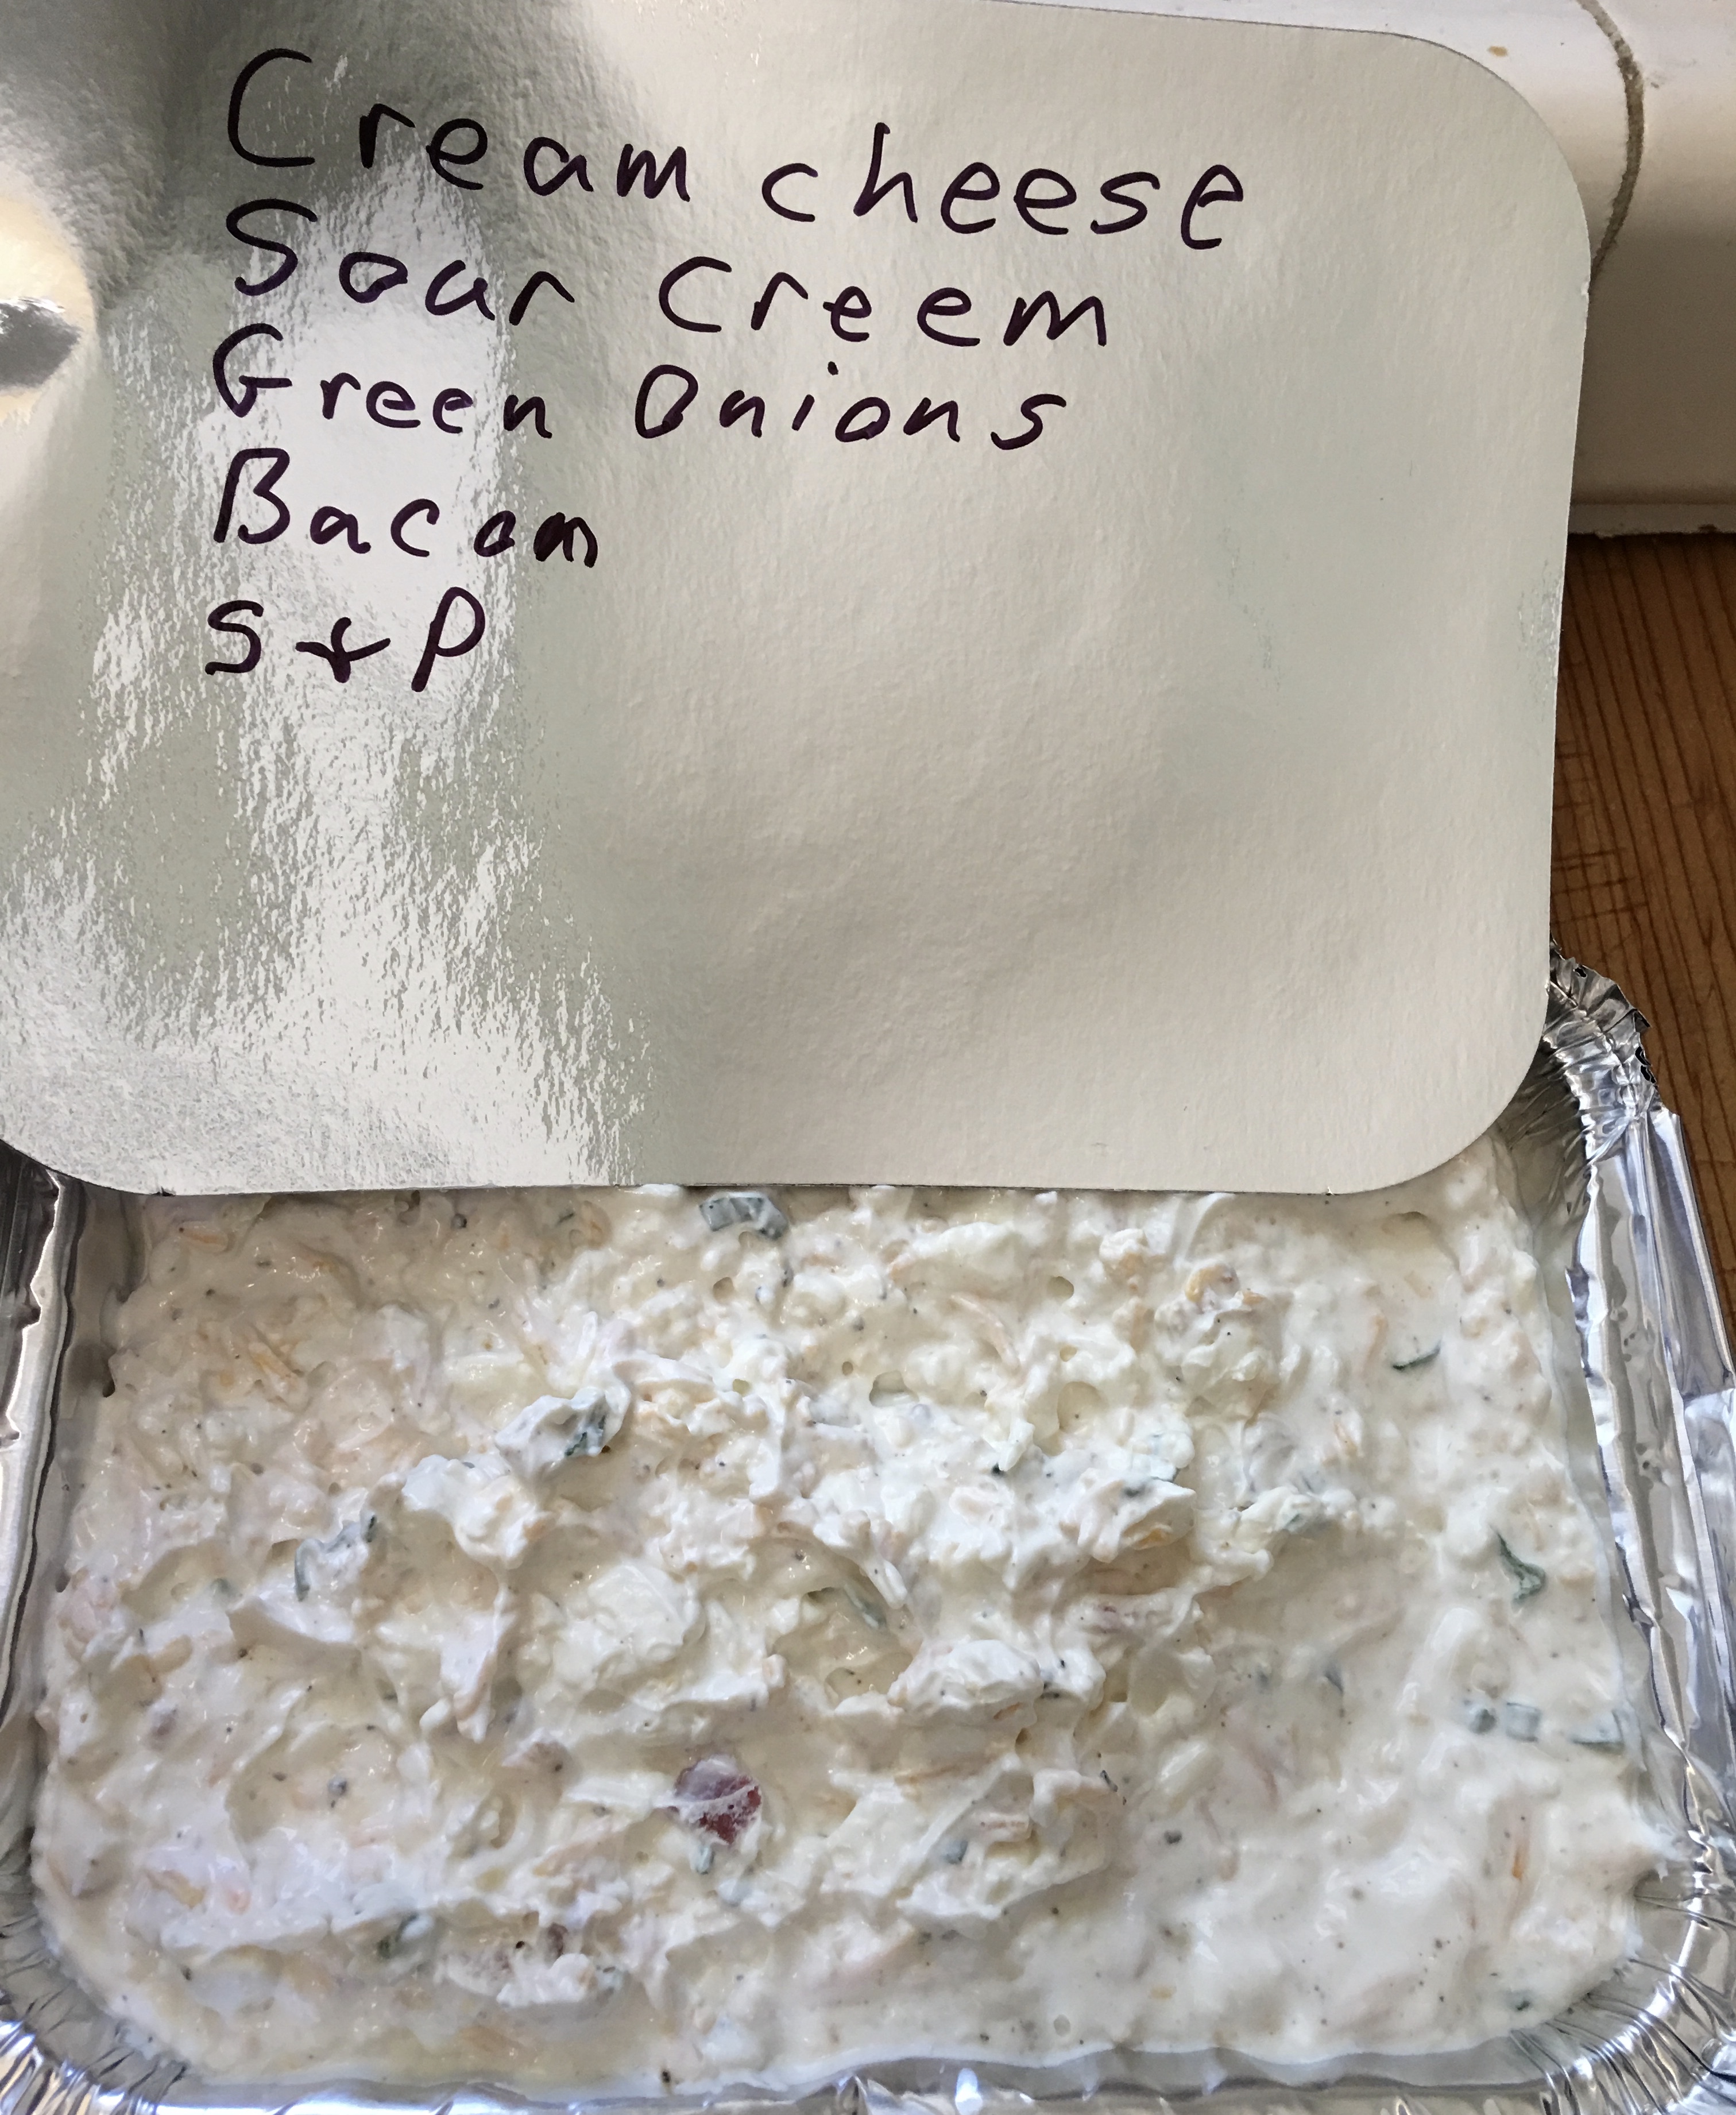 Cream cheese
Sour Creem
Green Onions
Bacon
S & P